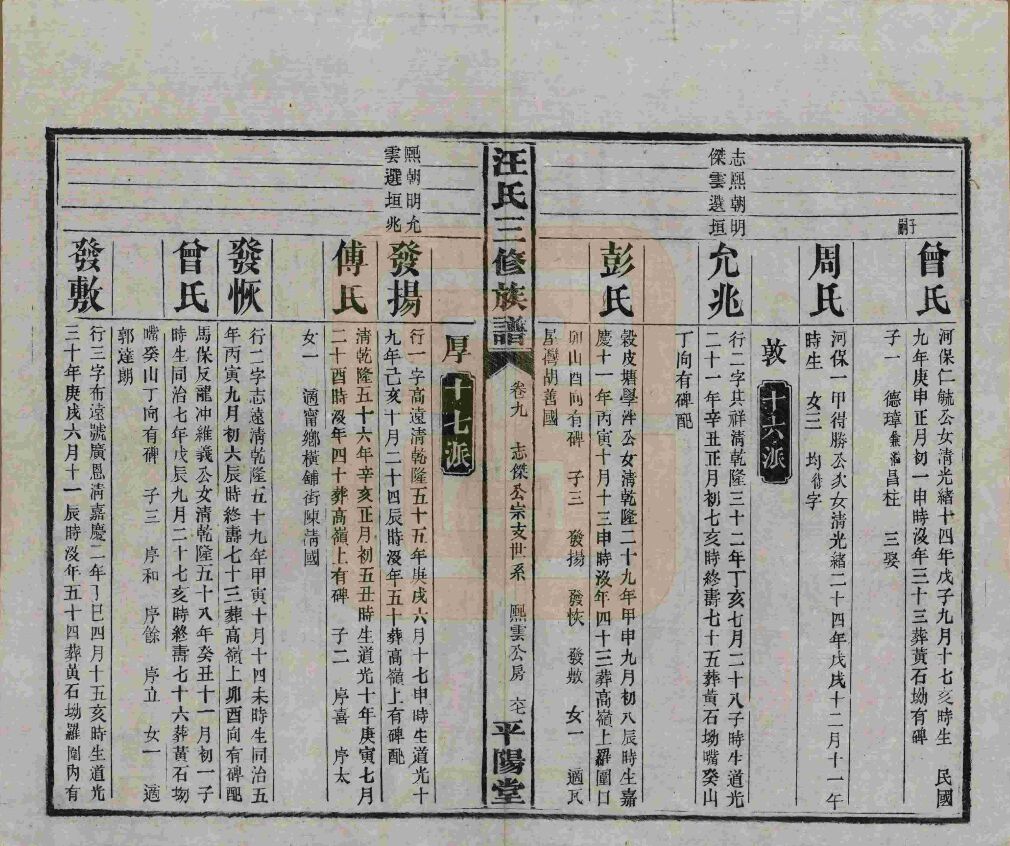 曾氏
河保仁毓公女清光緒十四年戊子九月十七亥時生 民國
九年庚申正月初一申時沒年三十三葬黃石坳有碑
子一 德璋兼祧昌柱 三娶
子嗣
周氏
河保一甲得勝公次女清光緒二十四年戊戌十二月十一午
時生 女三 均待字
敦 十六派
志熙朝明
傑雲選垣
允兆
行二字共祥清乾隆三十二年丁亥七月二十八子時生道光
二十一年辛丑正月初七亥時終壽七十五葬黃石坳嘴癸山
丁向有碑配
彭氏
穀皮塘學泮公女清乾隆二十九年甲申九月初八辰時生嘉
慶十一年丙寅十月十三申時沒年四十三葬高嶺上羅圍口
卯山酉向有碑 子三 發揚 發恢 發敷 女一 適瓦
屋灣胡善國
汪氏三修族譜 卷九 志傑公宗支世系 熙雲公房 平陽堂
厚 十七派
熙朝明允
雲選垣兆
發揚
行一字高遠清乾隆五十五年庚戌六月十七申時生道光十
九年己亥十月二十四辰時沒年五十葬高嶺上有碑配
傅氏
清乾隆五十六年辛亥正月初五丑時生道光十年庚寅七月
二十酉時沒年四十葬高嶺上有碑 子二 序喜 序太
女一 適甯鄉橫鋪街陳清國
發恢
行二字志遠清乾隆五十九年甲寅十月十四未時生同治五
年丙寅九月初六辰時終壽七十三葬高嶺上卯酉向有碑配
曾氏
馬保反龍冲維義公女清乾隆五十八年癸丑十一月初一子
時生同治七年戊辰九月二十七亥時終壽七十六葬黃石坳
嘴癸山丁向有碑 子三 序和 序餘 序立 女一 適
郭達朗
發敷
行三字布遠號廣恩清嘉慶二年丁巳四月十五亥時生道光
三十年庚戌六月十一辰時沒年五十四葬黃石坳羅圍內有